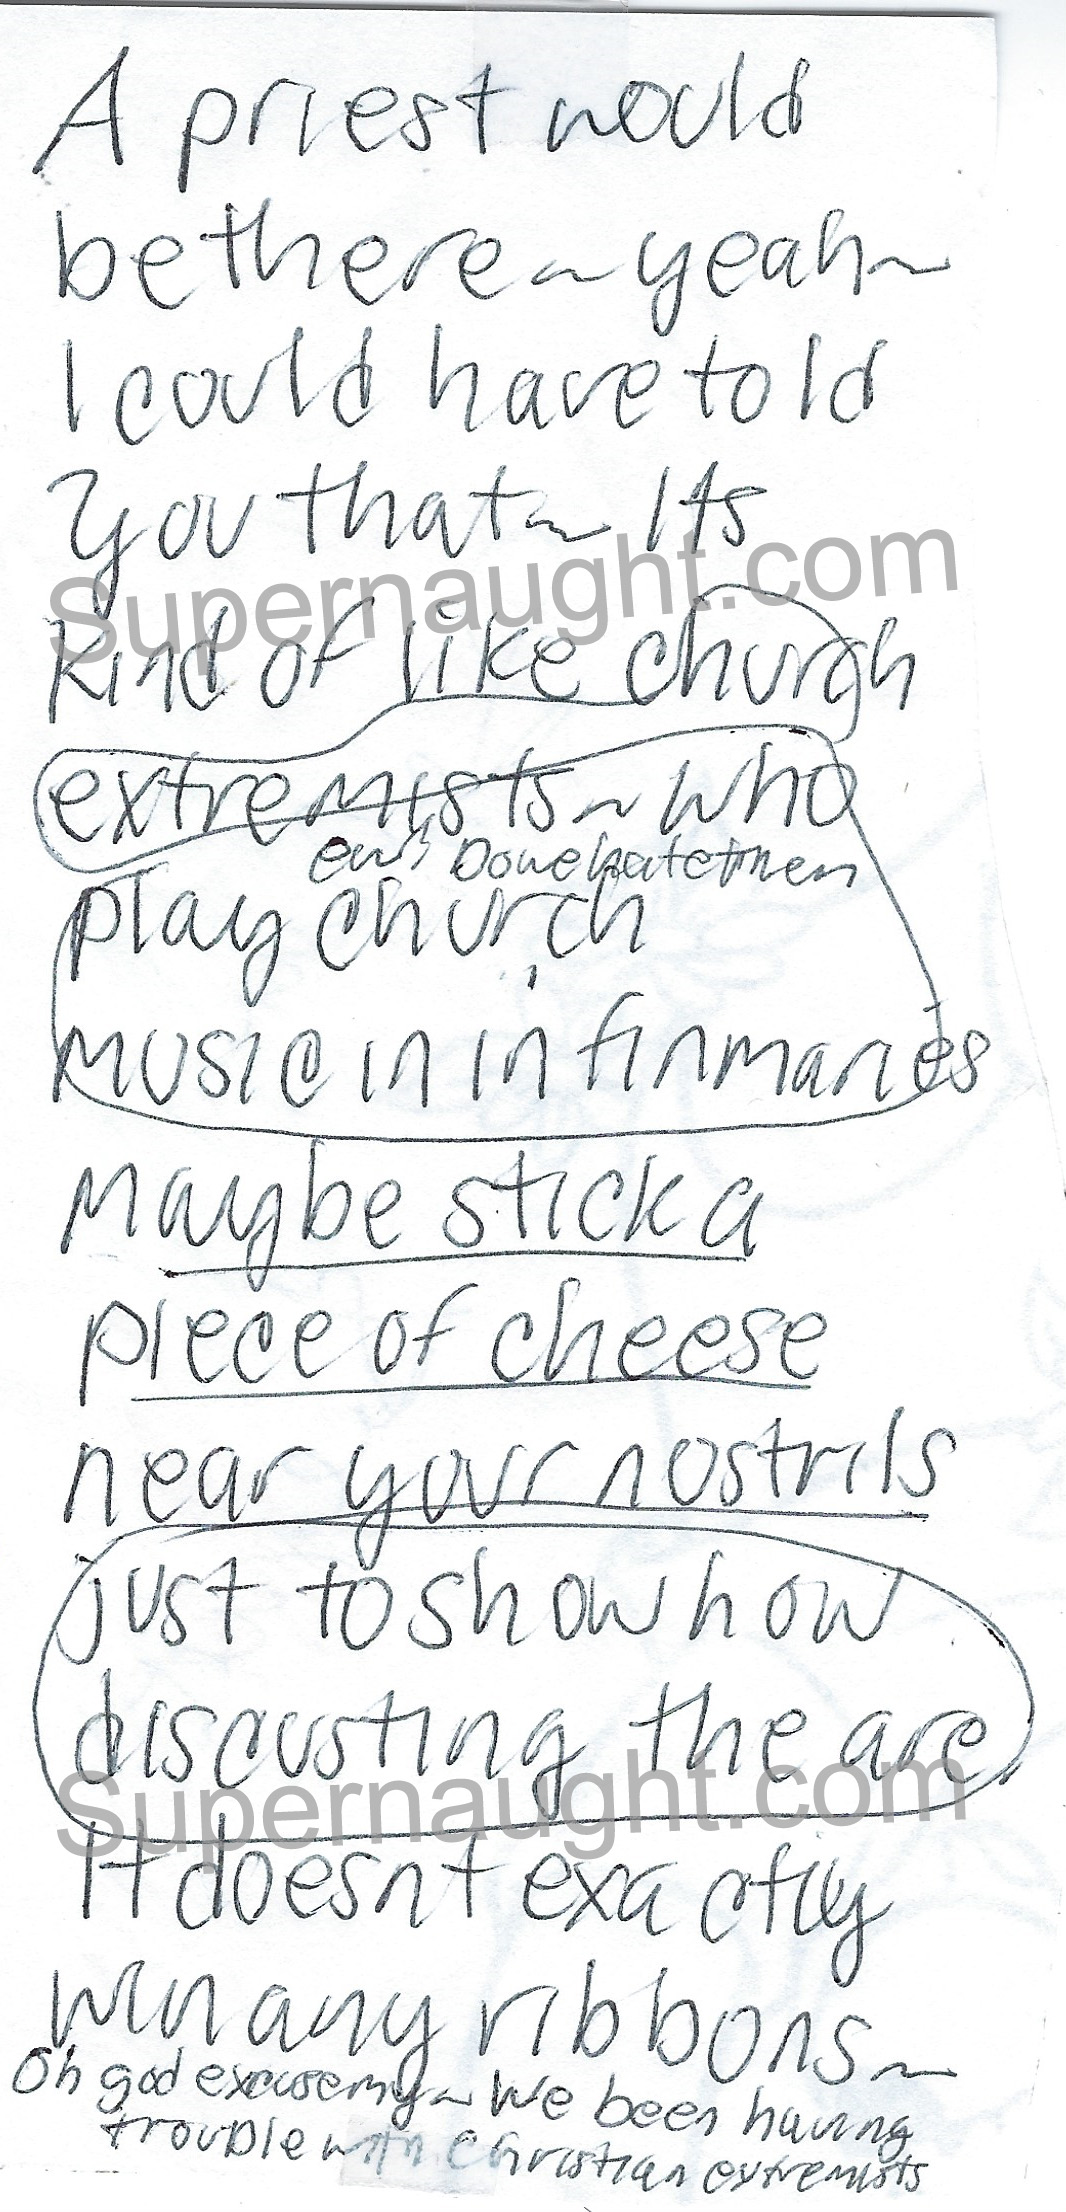 A priest would
be there~yeah~
I could have told
you that~ Its
Supernaught.com
kind of like church
extremists~who
Dove hate them
play church
music in infirmaries
Maybe stick a
piece of cheese
near your nostrils
just to show how
discusting the are
Supernaught.com
It doesnt exactly
win any ribbons~
Oh god excuse my~ We been having
trouble with Christian extremists